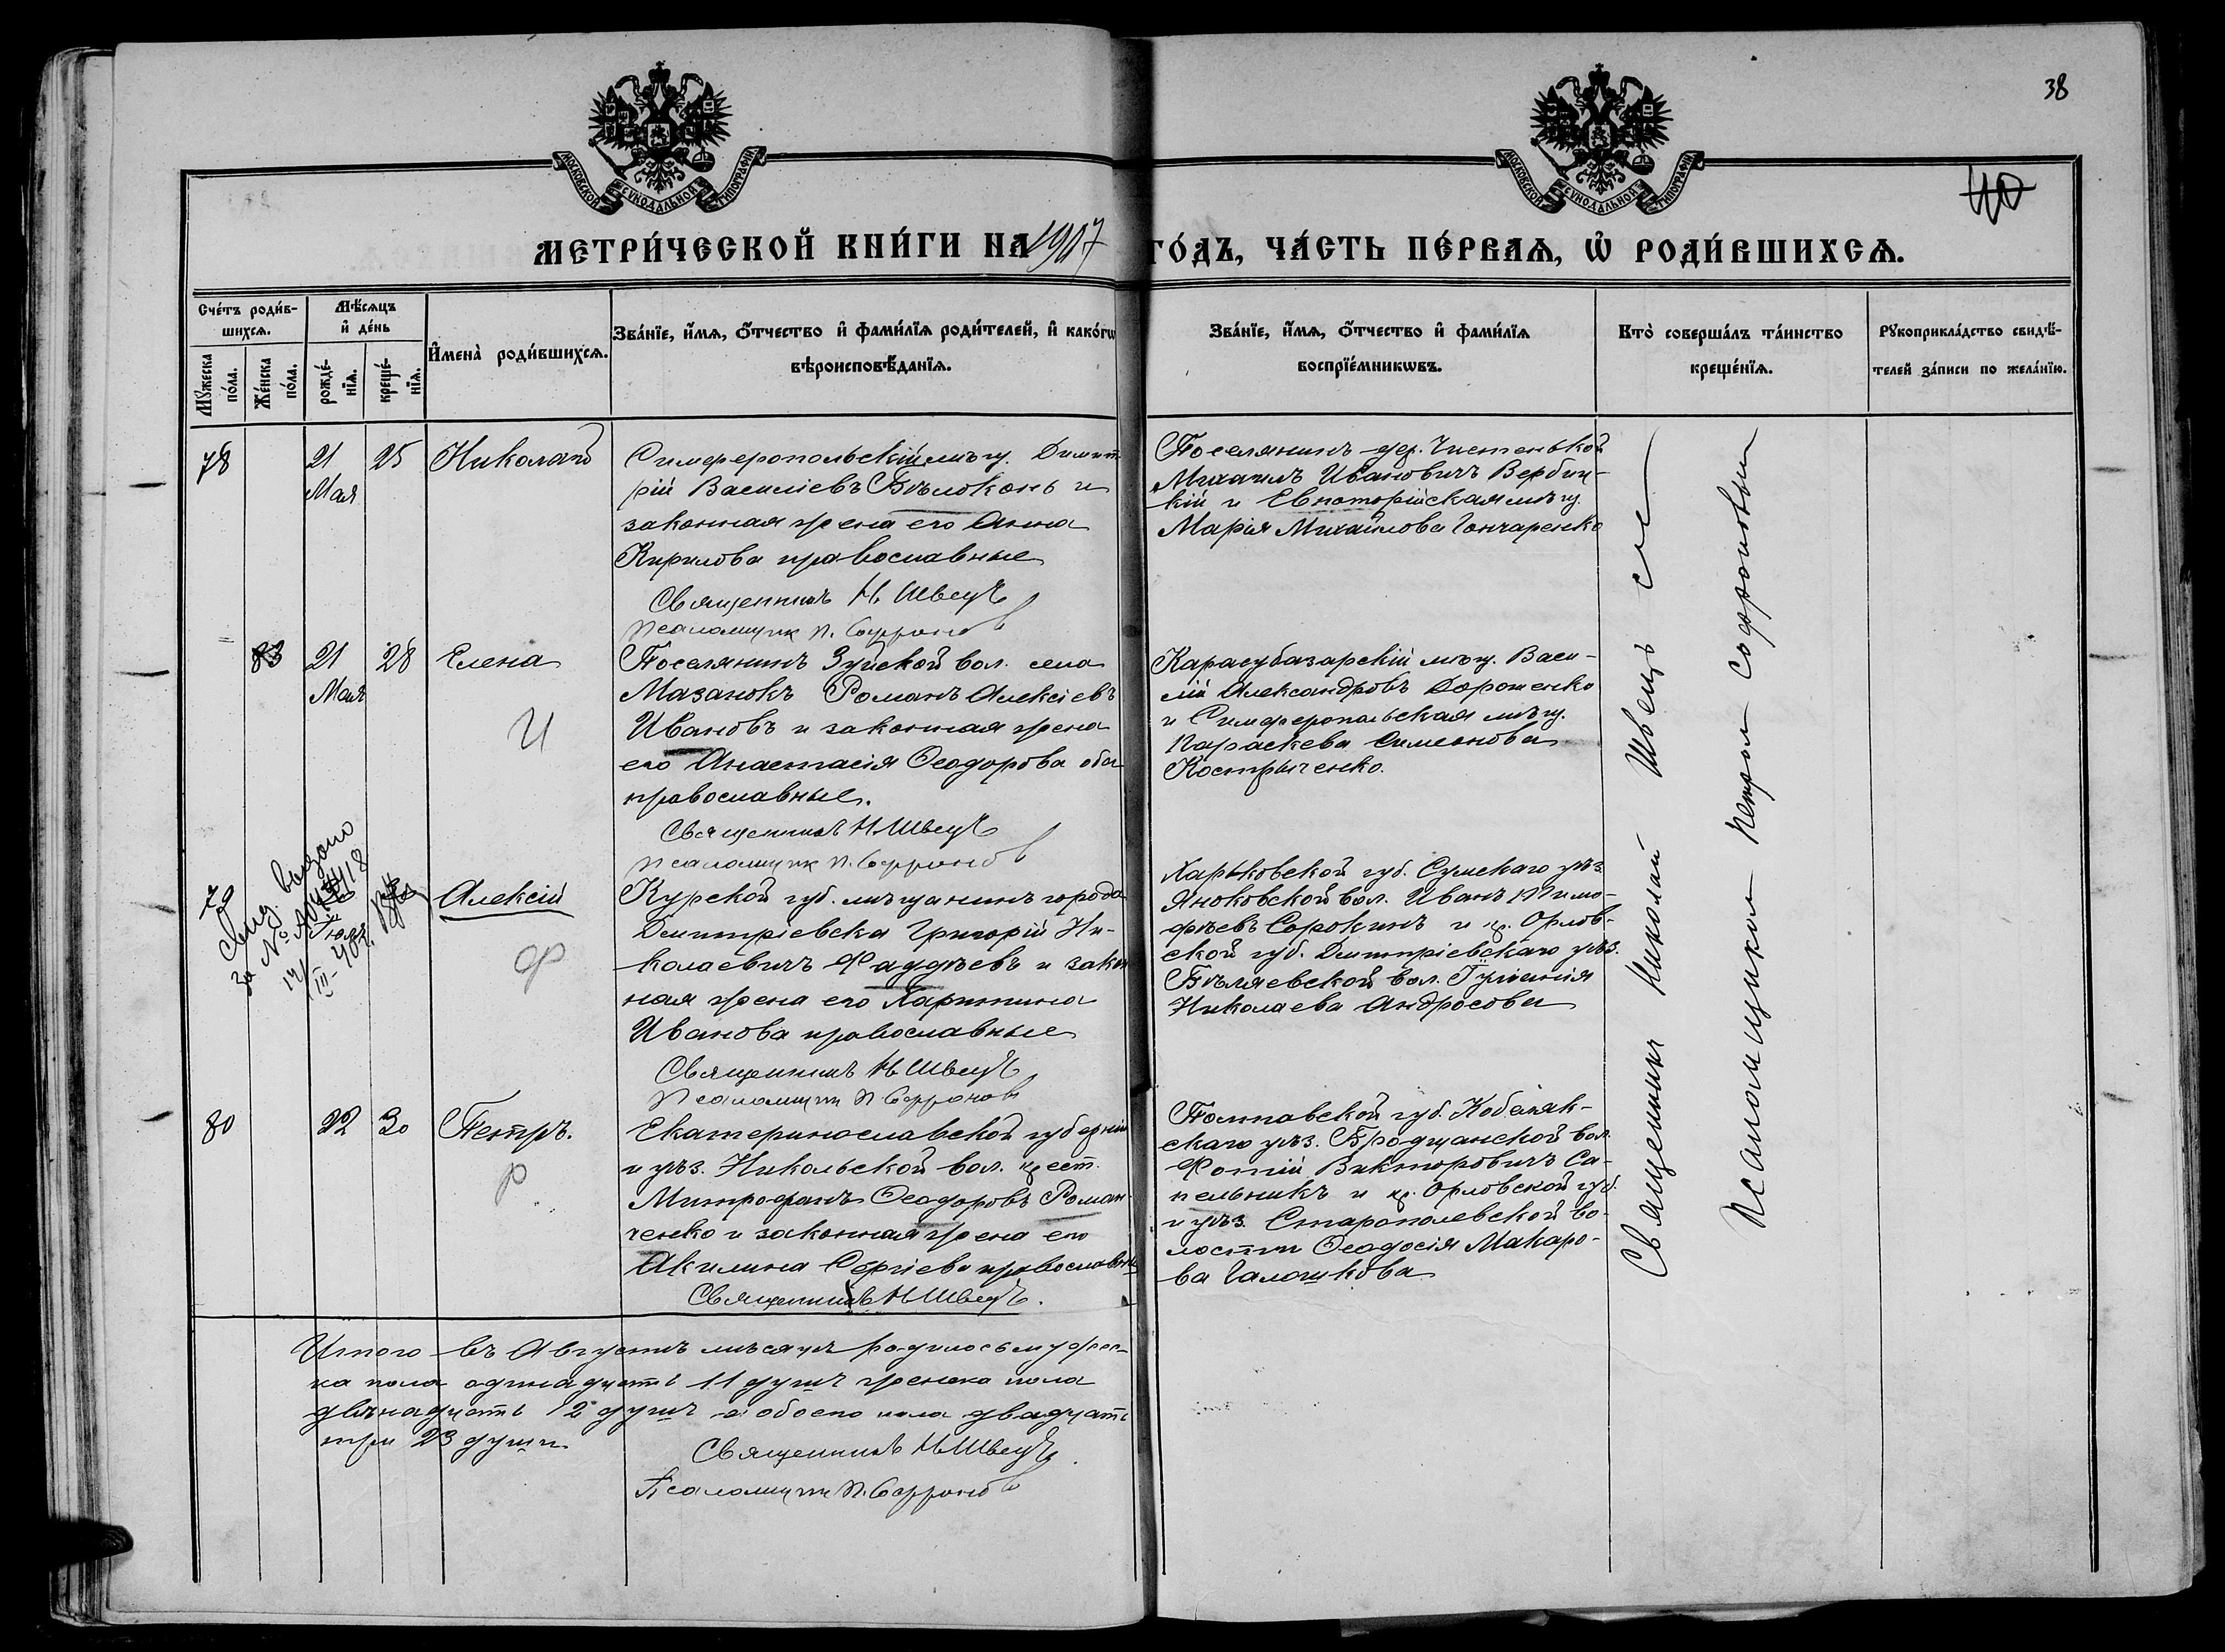 38
40
МОСКОВСКОЙ СѴНОДАЛЬНОЙ ТИПОГРАФІИ
МОСКОВСКОЙ СѴНОДАЛЬНОЙ ТИПОГРАФІИ
МЕТРИ́ЧЕСКОЙ КНИ́ГИ НА 1907 ГО́ДЪ, ЧА́СТЬ ПЕ́РВАѦ, Ѡ҆ РОДИ́ВШИХСѦ.
Сче́тъ роди́в-
шихсѧ.
Мꙋ́жеска
по́ла.
Же́нска
по́ла.
Мѣ́сѧцъ
и҆ де́нь
рожде́-
нїѧ.
креще́-
нїѧ.
И҆мена̀ роди́вшихсѧ.
Зва́нїе, и҆́мѧ, ѻ҆́тчество и҆ фами́лїѧ роди́телей, и҆ како́гѡ
вѣроисповѣ́данїѧ.
Зва́нїе, и҆́мѧ, ѻ҆́тчество и҆ фами́лїѧ
воспрїе́мникѡвъ.
Кто̀ соверша́лъ та́инство
креще́нїѧ.
Рꙋкоприкла́дство свидѣ́-
телей за́писи по жела́нїю.
78
21
Мая
25
Николай
Симферопольскій мѣщ. Димит
рій Василіевъ Бѣлоконь и
законная жена его Анна
Кирилова православные
Священникъ Н Швецъ
Псаломщик П. Софронов
Поселянинъ дер. Чистенькой
Михаилъ Ивановичъ Вербиц-
кій и Евпаторійская мѣщ.
Марія Михайлова Гончаренко
83
21
Мая
28
Елена
И
Поселянинъ Зуйской вол. села
Мазанокъ Романъ Алексіевъ
Ивановъ и законная жена
его Анастасія Ѳеодорова оба
православные.
Священникъ Н Швецъ
Псаломщик П. Софронов
Карасубазарскій мѣщ. Васи-
лій Александровъ Дорошенко
и Симферопольская мѣщ.
Параскева Симеонова
Костриченко.
79
свид. выдано
за №
Алексій
Ф
Курской губ. мѣщанинъ города
Дмитріевска Григорій Ни-
колаевичъ Фаддѣевъ и закон
ная жена его Харитина
Иванова православные
Священникъ Н Швецъ
Псаломщик П Софронов
Харьковской губ. Сумскаго уѣз.
Яноковской вол. Иванъ Тимо-
фѣевъ Сорокинъ и кр. Орлов-
ской губ. Дмитріевскаго уѣз.
Бѣляевской вол. Гликинія
Николаева Андросова
80
22
30
Петръ.
Р
Екатеринославской губерніи
и уѣз. Никольской вол. крест.
Митрофанъ Ѳеодоровъ Роман
ченко и законная жена его
Акилина Сергіева православны
Священникъ Н Швецъ.
Полтавской губ. Кобеляк-
скаго уѣз. Бродщанской вол.
Фотій Викторовичъ Са-
пельникъ и кр. Орловской губ.
и уѣз. Старопольевской во-
лости Ѳеодосія Макаро-
ва Галошкова
Священникъ Николай Швецъ съ
Псаломщиком Петром Софроновым
Итого въ Августѣ мѣсяцѣ родилось мужес-
ка пола одинадцать 11 душъ женска пола
двѣнадцать 12 душъ а обоего пола двадцать
три 23 души
Священникъ Н Швецъ
Псаломщик П. Софронов